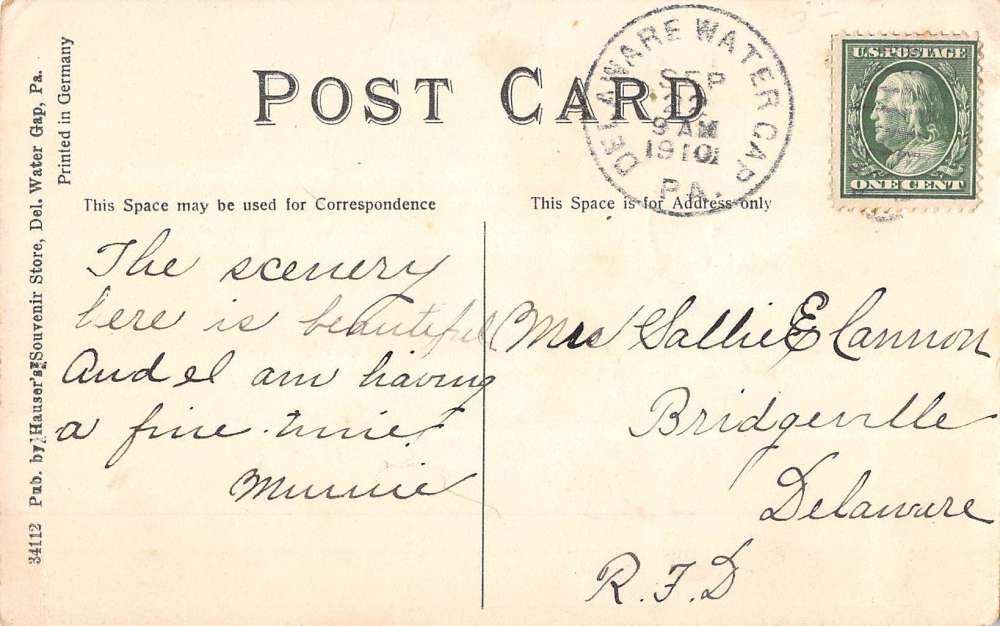 POST CARD
DELAWARE WATER GAP
SEP
22
9 AM
1910
PA.
U.S. POSTAGE
ONE CENT
This Space may be used for Correspondence
This Space is for Address only
The scenery
here is beautiful
And I am having
a fine time
Minnie
Mrs Sallie E Cannon
Bridgeville
Delaware
R.F.D
Printed in Germany
34112 Pub. by Hauser's Souvenir Store, Del. Water Gap, Pa.